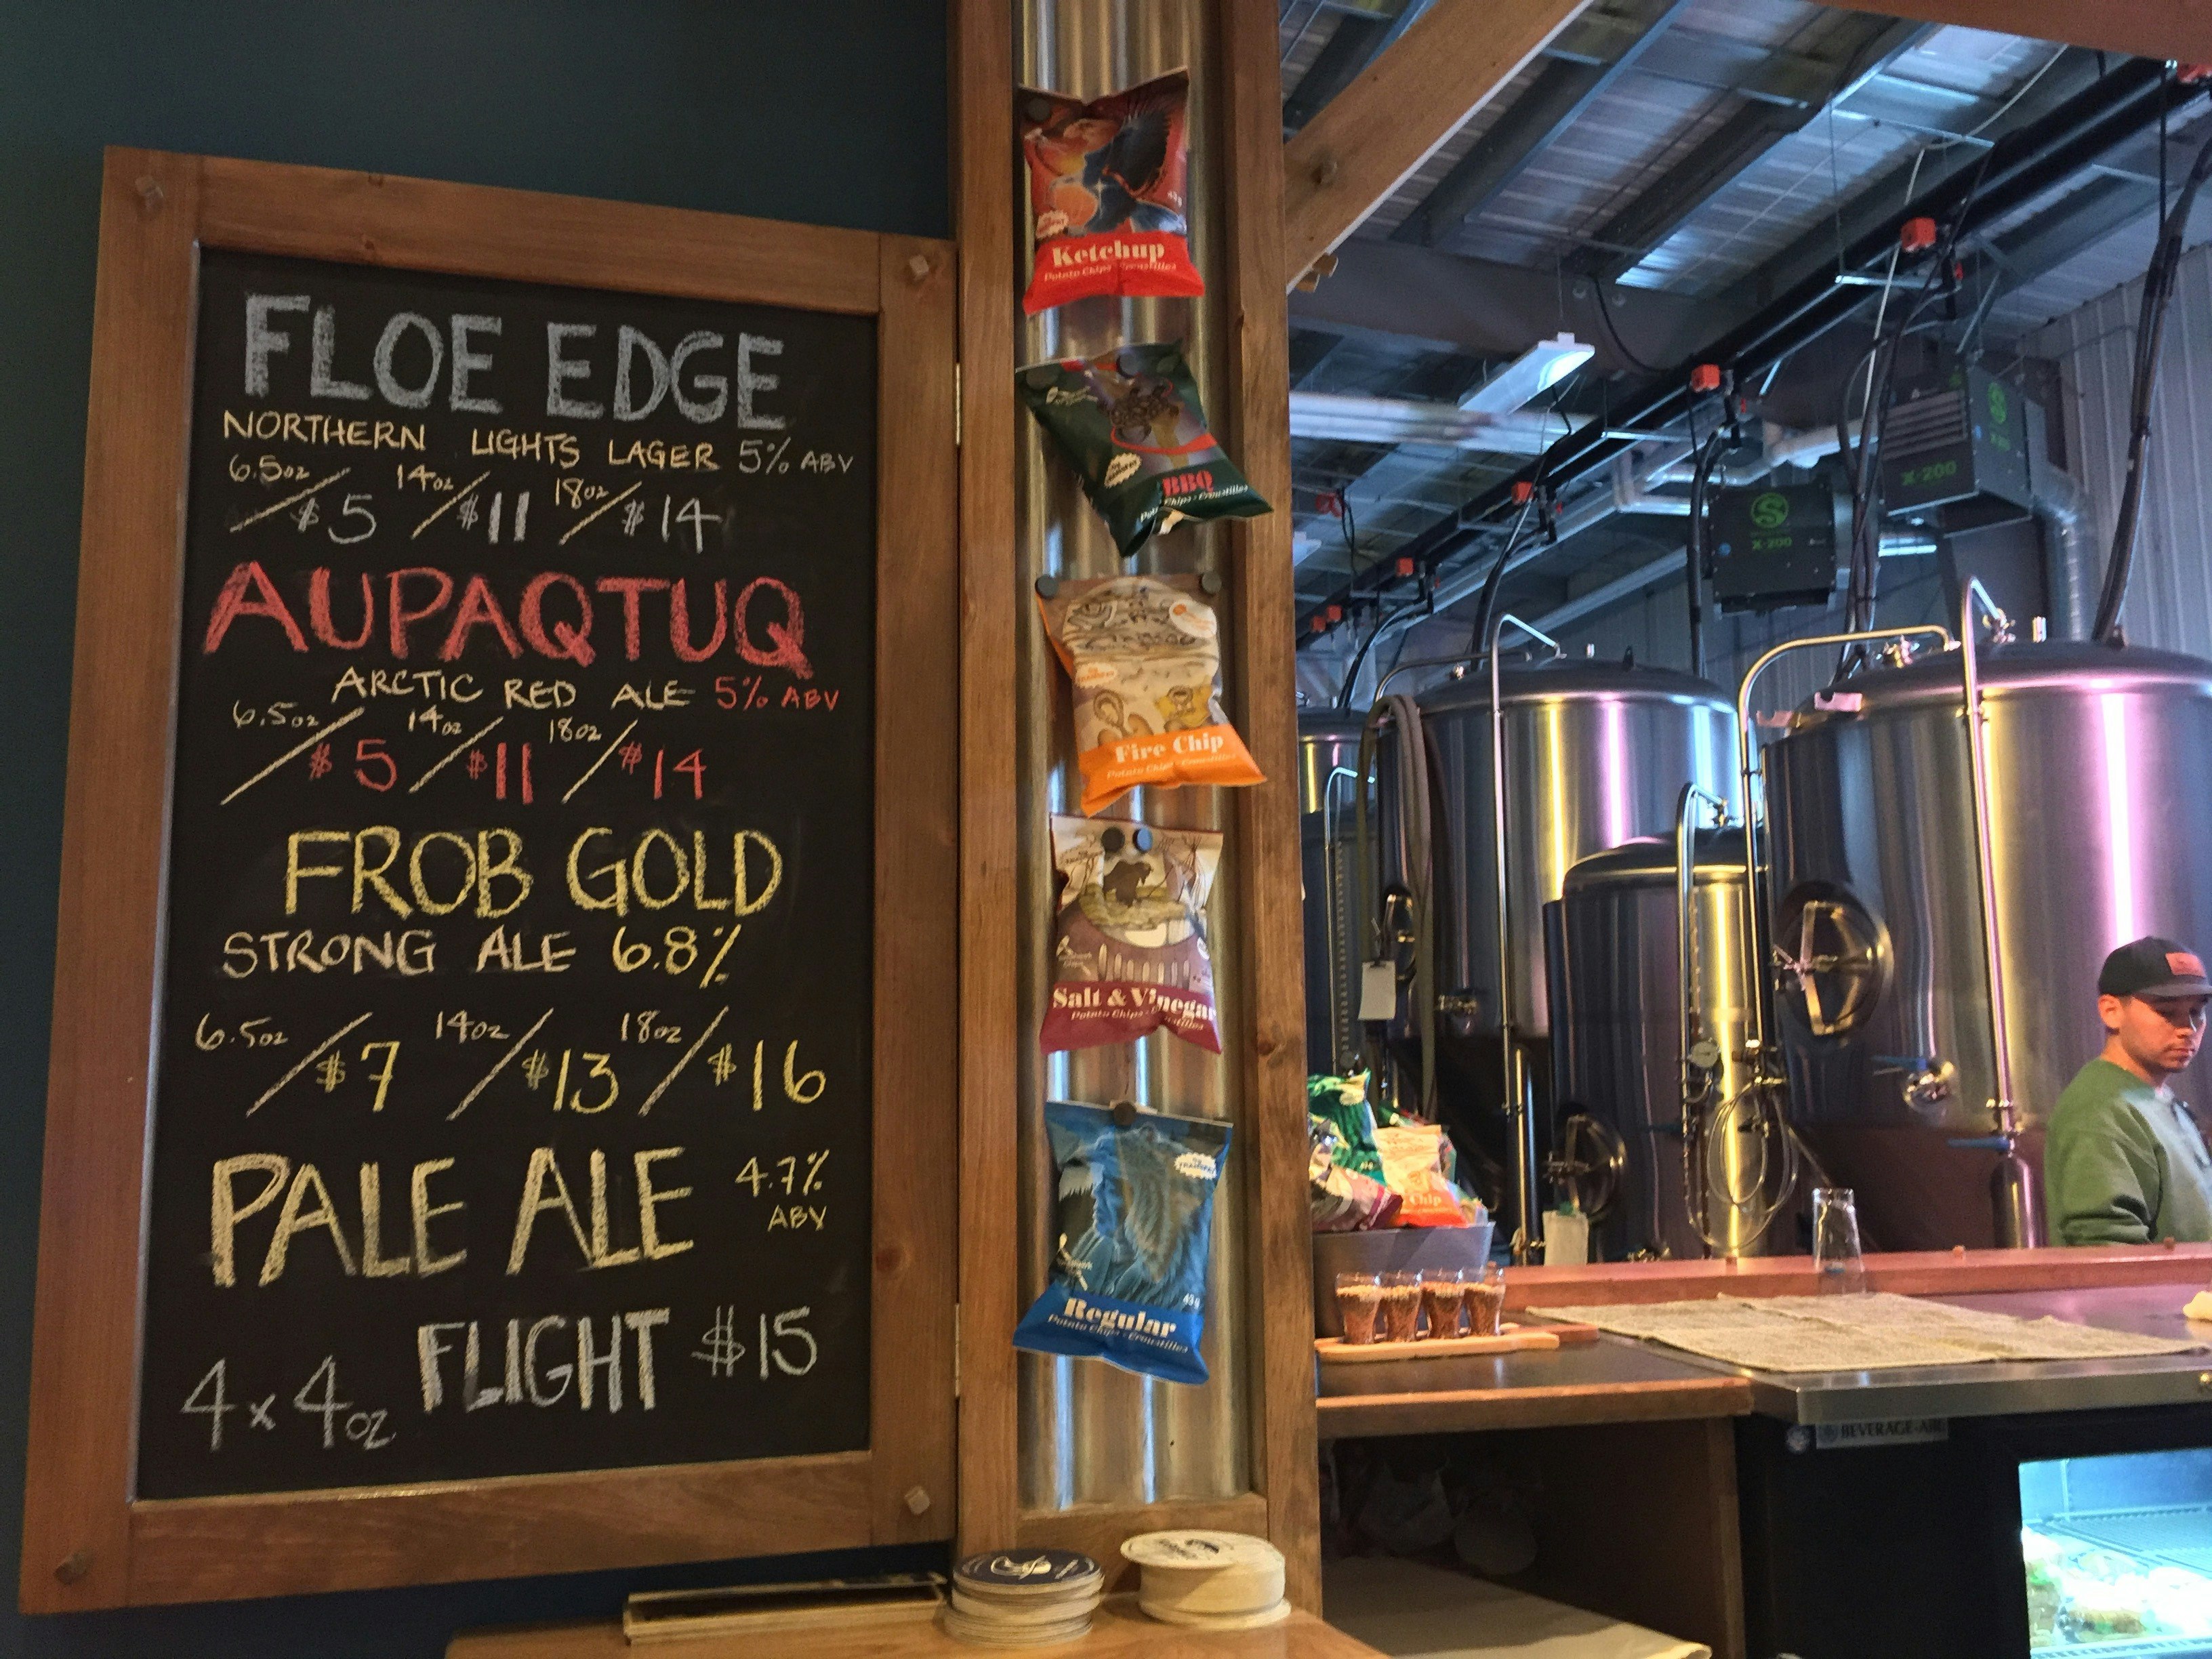 FLOE EDGE
NORTHERN LIGHTS LAGER 5% ABV
6.5oz $5 14oz $11 18oz $14
AUPAQTUQ
ARCTIC RED ALE 5% ABV
6.5oz $5 14oz $11 18oz $14
FROB GOLD
STRONG ALE 6.8%
6.5oz $7 14oz $13 18oz $16
PALE ALE 4.7% ABV
4x4oz FLIGHT $15
Ketchup
Potato Chips · Croustilles
BBQ
Chips · Croustilles
Fire Chip
Potato Chips · Croustilles
Salt & Vinegar
Potato Chips · Croustilles
43g
Regular
Potato Chips · Croustilles
X-200
X-200
Chip
BEVERAGE-AIR